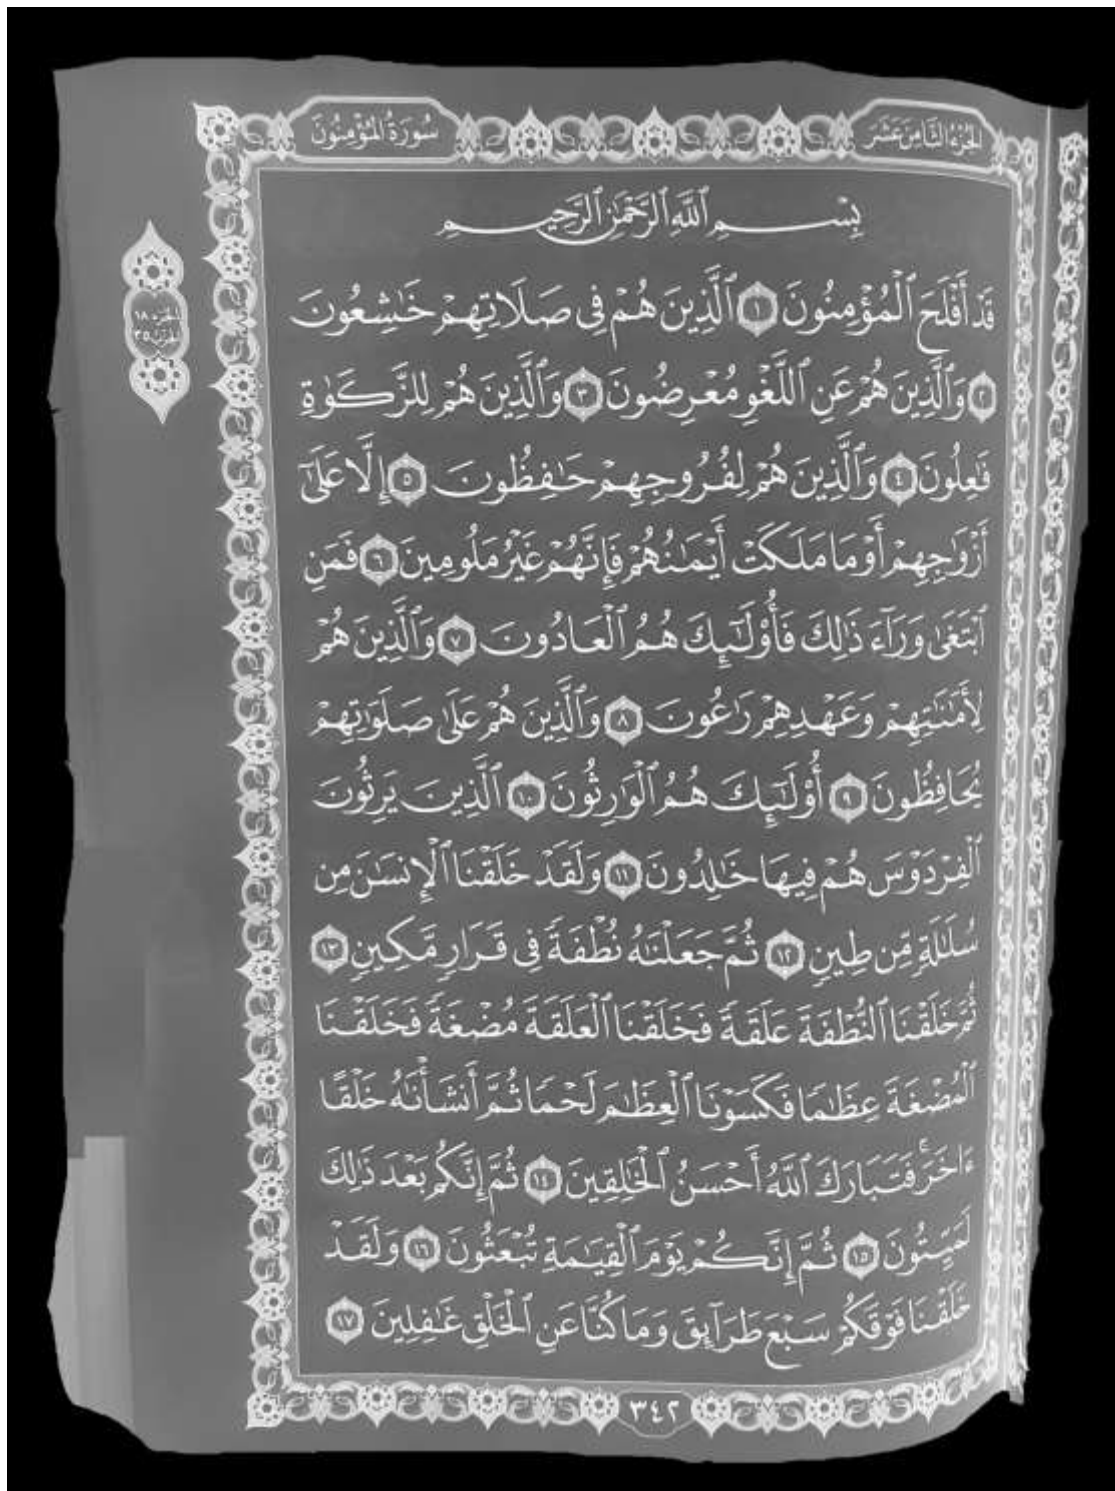 الجزء الثامن عشر
سورة المؤمنون
بِسْمِ ٱللَّهِ ٱلرَّحْمَٰنِ ٱلرَّحِيمِ
قَدْ أَفْلَحَ ٱلْمُؤْمِنُونَ ١ ٱلَّذِينَ هُمْ فِى صَلَاتِهِمْ خَٰشِعُونَ
٢ وَٱلَّذِينَ هُمْ عَنِ ٱللَّغْوِ مُعْرِضُونَ ٣ وَٱلَّذِينَ هُمْ لِلزَّكَوٰةِ
فَٰعِلُونَ ٤ وَٱلَّذِينَ هُمْ لِفُرُوجِهِمْ حَٰفِظُونَ ٥ إِلَّا عَلَىٰٓ
أَزْوَٰجِهِمْ أَوْ مَا مَلَكَتْ أَيْمَٰنُهُمْ فَإِنَّهُمْ غَيْرُ مَلُومِينَ ٦ فَمَنِ
ٱبْتَغَىٰ وَرَآءَ ذَٰلِكَ فَأُو۟لَٰٓئِكَ هُمُ ٱلْعَادُونَ ٧ وَٱلَّذِينَ هُمْ
لِأَمَٰنَٰتِهِمْ وَعَهْدِهِمْ رَٰعُونَ ٨ وَٱلَّذِينَ هُمْ عَلَىٰ صَلَوَٰتِهِمْ
يُحَافِظُونَ ٩ أُو۟لَٰٓئِكَ هُمُ ٱلْوَٰرِثُونَ ١٠ ٱلَّذِينَ يَرِثُونَ
ٱلْفِرْدَوْسَ هُمْ فِيهَا خَٰلِدُونَ ١١ وَلَقَدْ خَلَقْنَا ٱلْإِنسَٰنَ مِن
سُلَٰلَةٍ مِّن طِينٍ ١٢ ثُمَّ جَعَلْنَٰهُ نُطْفَةً فِى قَرَارٍ مَّكِينٍ ١٣
ثُمَّ خَلَقْنَا ٱلنُّطْفَةَ عَلَقَةً فَخَلَقْنَا ٱلْعَلَقَةَ مُضْغَةً فَخَلَقْنَا
ٱلْمُضْغَةَ عِظَٰمًا فَكَسَوْنَا ٱلْعِظَٰمَ لَحْمًا ثُمَّ أَنشَأْنَٰهُ خَلْقًا
ءَاخَرَ ۚ فَتَبَارَكَ ٱللَّهُ أَحْسَنُ ٱلْخَٰلِقِينَ ١٤ ثُمَّ إِنَّكُم بَعْدَ ذَٰلِكَ
لَمَيِّتُونَ ١٥ ثُمَّ إِنَّكُمْ يَوْمَ ٱلْقِيَٰمَةِ تُبْعَثُونَ ١٦ وَلَقَدْ
خَلَقْنَا فَوْقَكُمْ سَبْعَ طَرَآئِقَ وَمَا كُنَّا عَنِ ٱلْخَلْقِ غَٰفِلِينَ ١٧
٣٤٢
الجزء ١٨
الحزب ٣٥